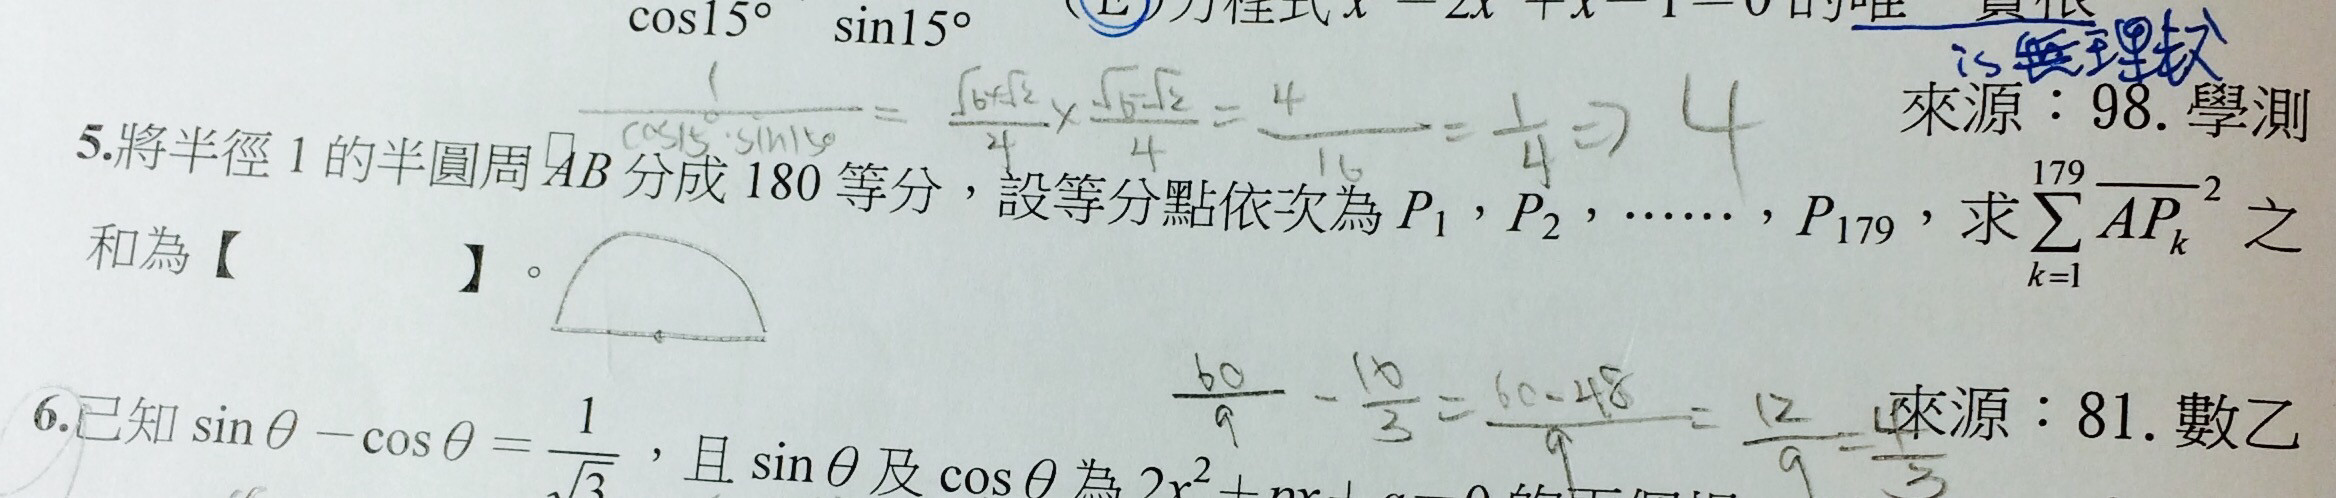 cos15° sin15° (E)方程式
is 無理數
1/(cos15°·sin15°) = (√6+√2)/4 × (√6-√2)/4 = 4/16 = 1/4 => 4
來源：98. 學測
5.將半徑 1 的半圓周 □AB 分成 180 等分，設等分點依次為 P₁，P₂，……，P₁₇₉，求 ∑_{k=1}^{179} \overline{AP_k}² 之
和為【 】。
60/9 - 16/3 = 60-48/9 = 12/9 = 4/3
來源：81. 數乙
6.已知 sin θ －cos θ = 1/√3，且 sin θ 及 cos θ 為 2x²